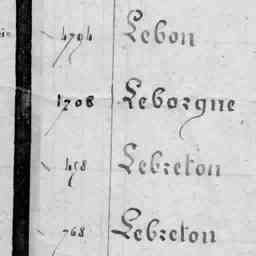 1794 Lebon
1708 Leborgne
458 Lebreton
768 Lebreton